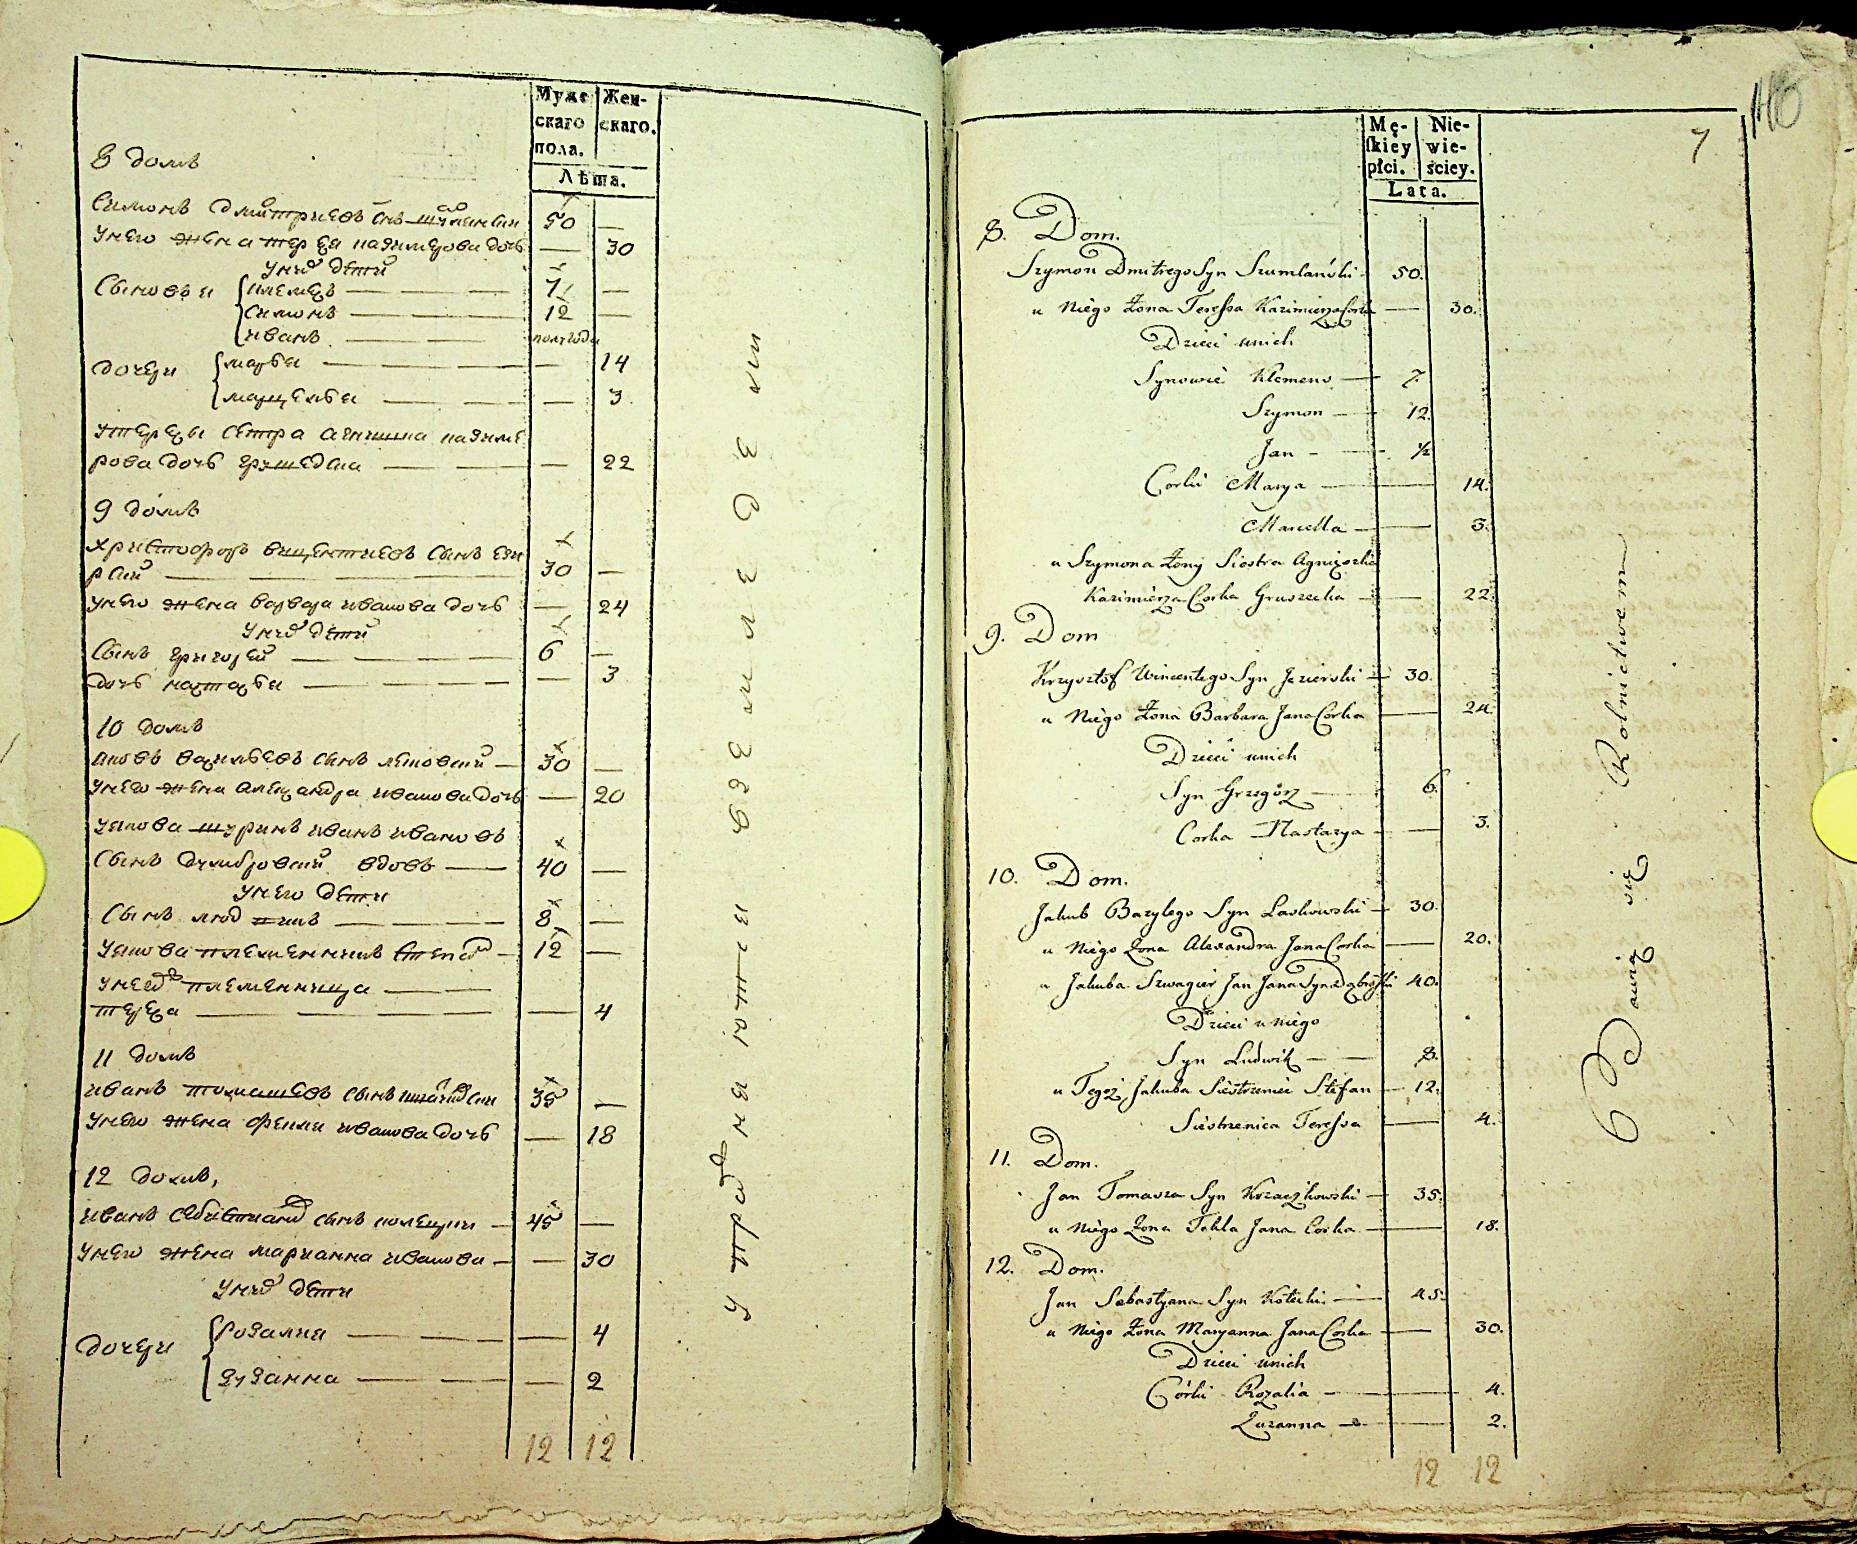 Муже
скаго
пола.
Жен-
скаго.
Лѣта.
8 домъ
Симонъ Дмитриевъ снъ
50 —
у него жена тереса казимерова дочь — 30
у нихъ дети
Сыновья клеменъ — 7 —
Симонъ — 12 —
иванъ — полгода
дочери марья — — 14
марцелья — — 3
у терезы сестра агнишка казиме
рова дочь грушецка — — 22
9 домъ
христофоръ винцентиевъ сынъ ези
рский — 30 —
у него жена варвара иванова дочь — 24
у нихъ дети
Сынъ григорей — 6 —
дочь настасья — — 3
10 домъ
яковъ васильевъ сынъ — 30 —
у него жена александра иванова дочь — 20
якова шуринъ иванъ ивановъ
сынъ домбровский вдовъ — 40 —
у него дети
Сынъ людвикъ — 8 —
якова племенникъ стефанъ — 12 —
племенница
тереса — — 4
11 домъ
иванъ томашевъ сынъ
35 —
у него жена фекла иванова дочь — 18
12 домъ,
иванъ себестиановъ сынъ — 45 —
у него жена марианна иванова — — 30
у нихъ дети
дочери розалия — — 4
зузанна — — 2
12 12
7
Mę-
skiey
płci.
Nie-
wie-
ściey.
Lata.
8. Dom.
Szymon Dmitrego Syn Szumlański 50.
u Niego Żona Teressa Kazimierza Corka — 30.
Dzieci unich
Synowie Klemens — 7.
Szymon — 12.
Jan — ½
Corki Marya — 14.
Marcella — 3.
u Szymona Żony Siostra Agnieszka
Kazimierza Corka Gruszecka — 22.
9. Dom
Krzysztof Wincentego Syn Jezierski — 30.
u Niego Żona Barbara Jana Corka — 24.
Dzieci unich
Syn Grzegórz — 6.
Corka Nastazya — 3.
10. Dom.
Jakub Bazylego Syn Laskowski — 30.
u Niego Żona Alexandra Jana Corka — 20.
u Jakuba Szwagier Jan Jana Syn 40.
Dzieci u niego
Syn Ludwik — 8.
u Tegoż Jakuba Siestrzeniec Stefan — 12.
Siestrzenica Teressa — 4.
11. Dom.
Jan Tomasza Syn — 35.
u Niego Żona Tekla Jana Corka — 18.
12. Dom.
Jan Sebastyana Syn Kotecki — 45.
u Niego Żona Maryanna Jana Corka — 30.
Dzieci unich
Córki Rozalia — 4.
Zuzanna — 2.
12 12
Bawią się Rolnictwem